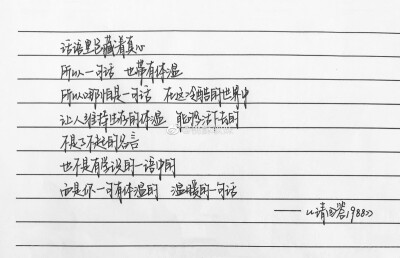 话语里包藏着真心
所以一句话 也带有体温
所以哪怕是一句话 在这冷酷的世界中
让人维持生存的体温 能够活下去的
不是了不起的名言
也不是有学识的一语中的
而是你一句有体温的 温暖的一句话
——《请回答1988》